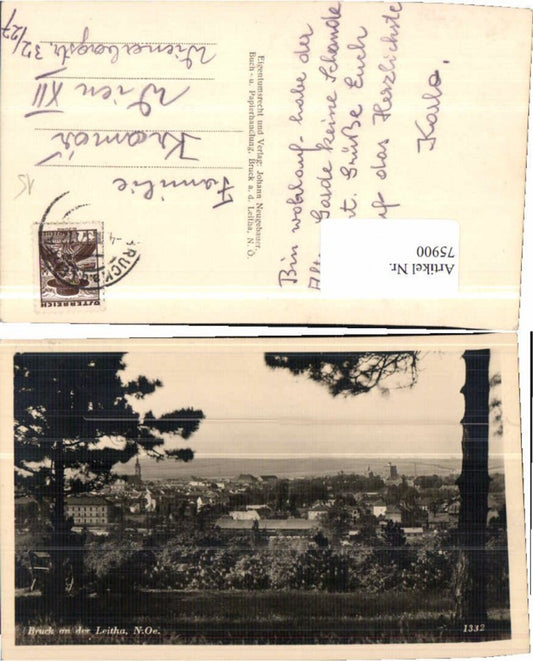 Bin wohlauf - habe der
Garde keine Schande
Grüße Euch
auf das Herzlichste
Karl.
Eigentumsrecht und Verlag: Johann Neugebauer,
Buch- u. Papierhandlung, Bruck a. d. Leitha, N. Ö.
Familie
Kramár
Wien XII
Wienerbergstr. 32/27
15
BRUCK
ÖSTERREICH
Artikel Nr.
75900
Bruck an der Leitha, N.Oe.
1332